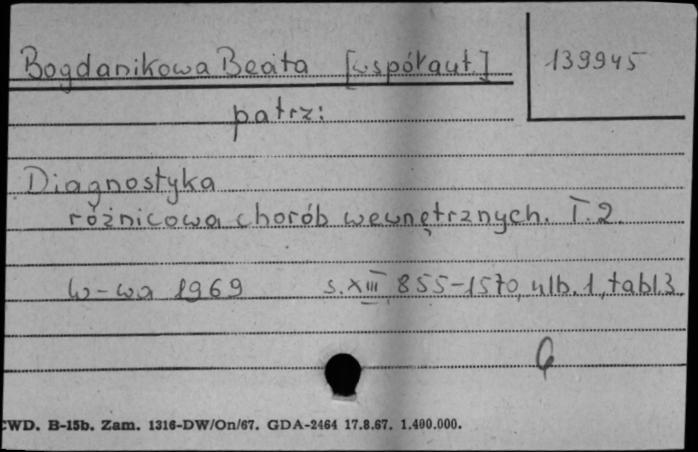 Bogdanikowa Beata [współaut.] 139945
patrz:
Diagnostyka
różnicowa chorób wewnętrznych. T.2.
W-wa 1969 s. XIII, 855-1570, nlb. 1, tabl 3
CWD. B-15b. Zam. 1316-DW/On/67. GDA-2464 17.8.67. 1.400.000.